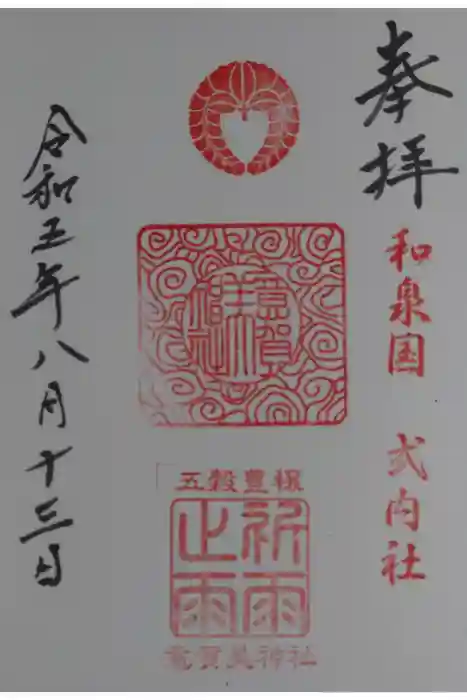 奉拝
和泉国 式内社
意賀美神社
五穀豊穣
祈雨
止雨
意賀美神社
令和五年八月十三日